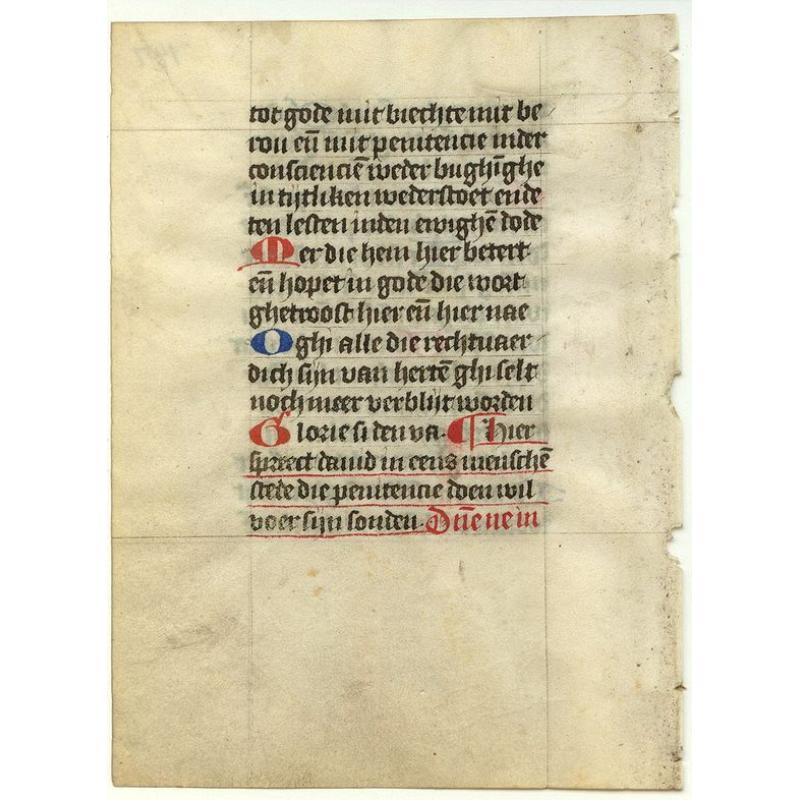 tot gode mit biechte mit be
rou eñ mit penitencie inder
consciencië weder bughīghe
in tijtliken wederstoet ende
ten lesten inden ewighē dode
Mer die hem hier betert
eñ hopet in gode die wort
ghetroost hier eñ hier nae
O ghi alle die rechtuaer
dich sijn van hertē ghi selt
noch meer verblijt worden
Glorie si den va. Hier
spreect dauid in eens menschē
stede die penitencie doen wil
voer sijn sonden. Dñe ne in